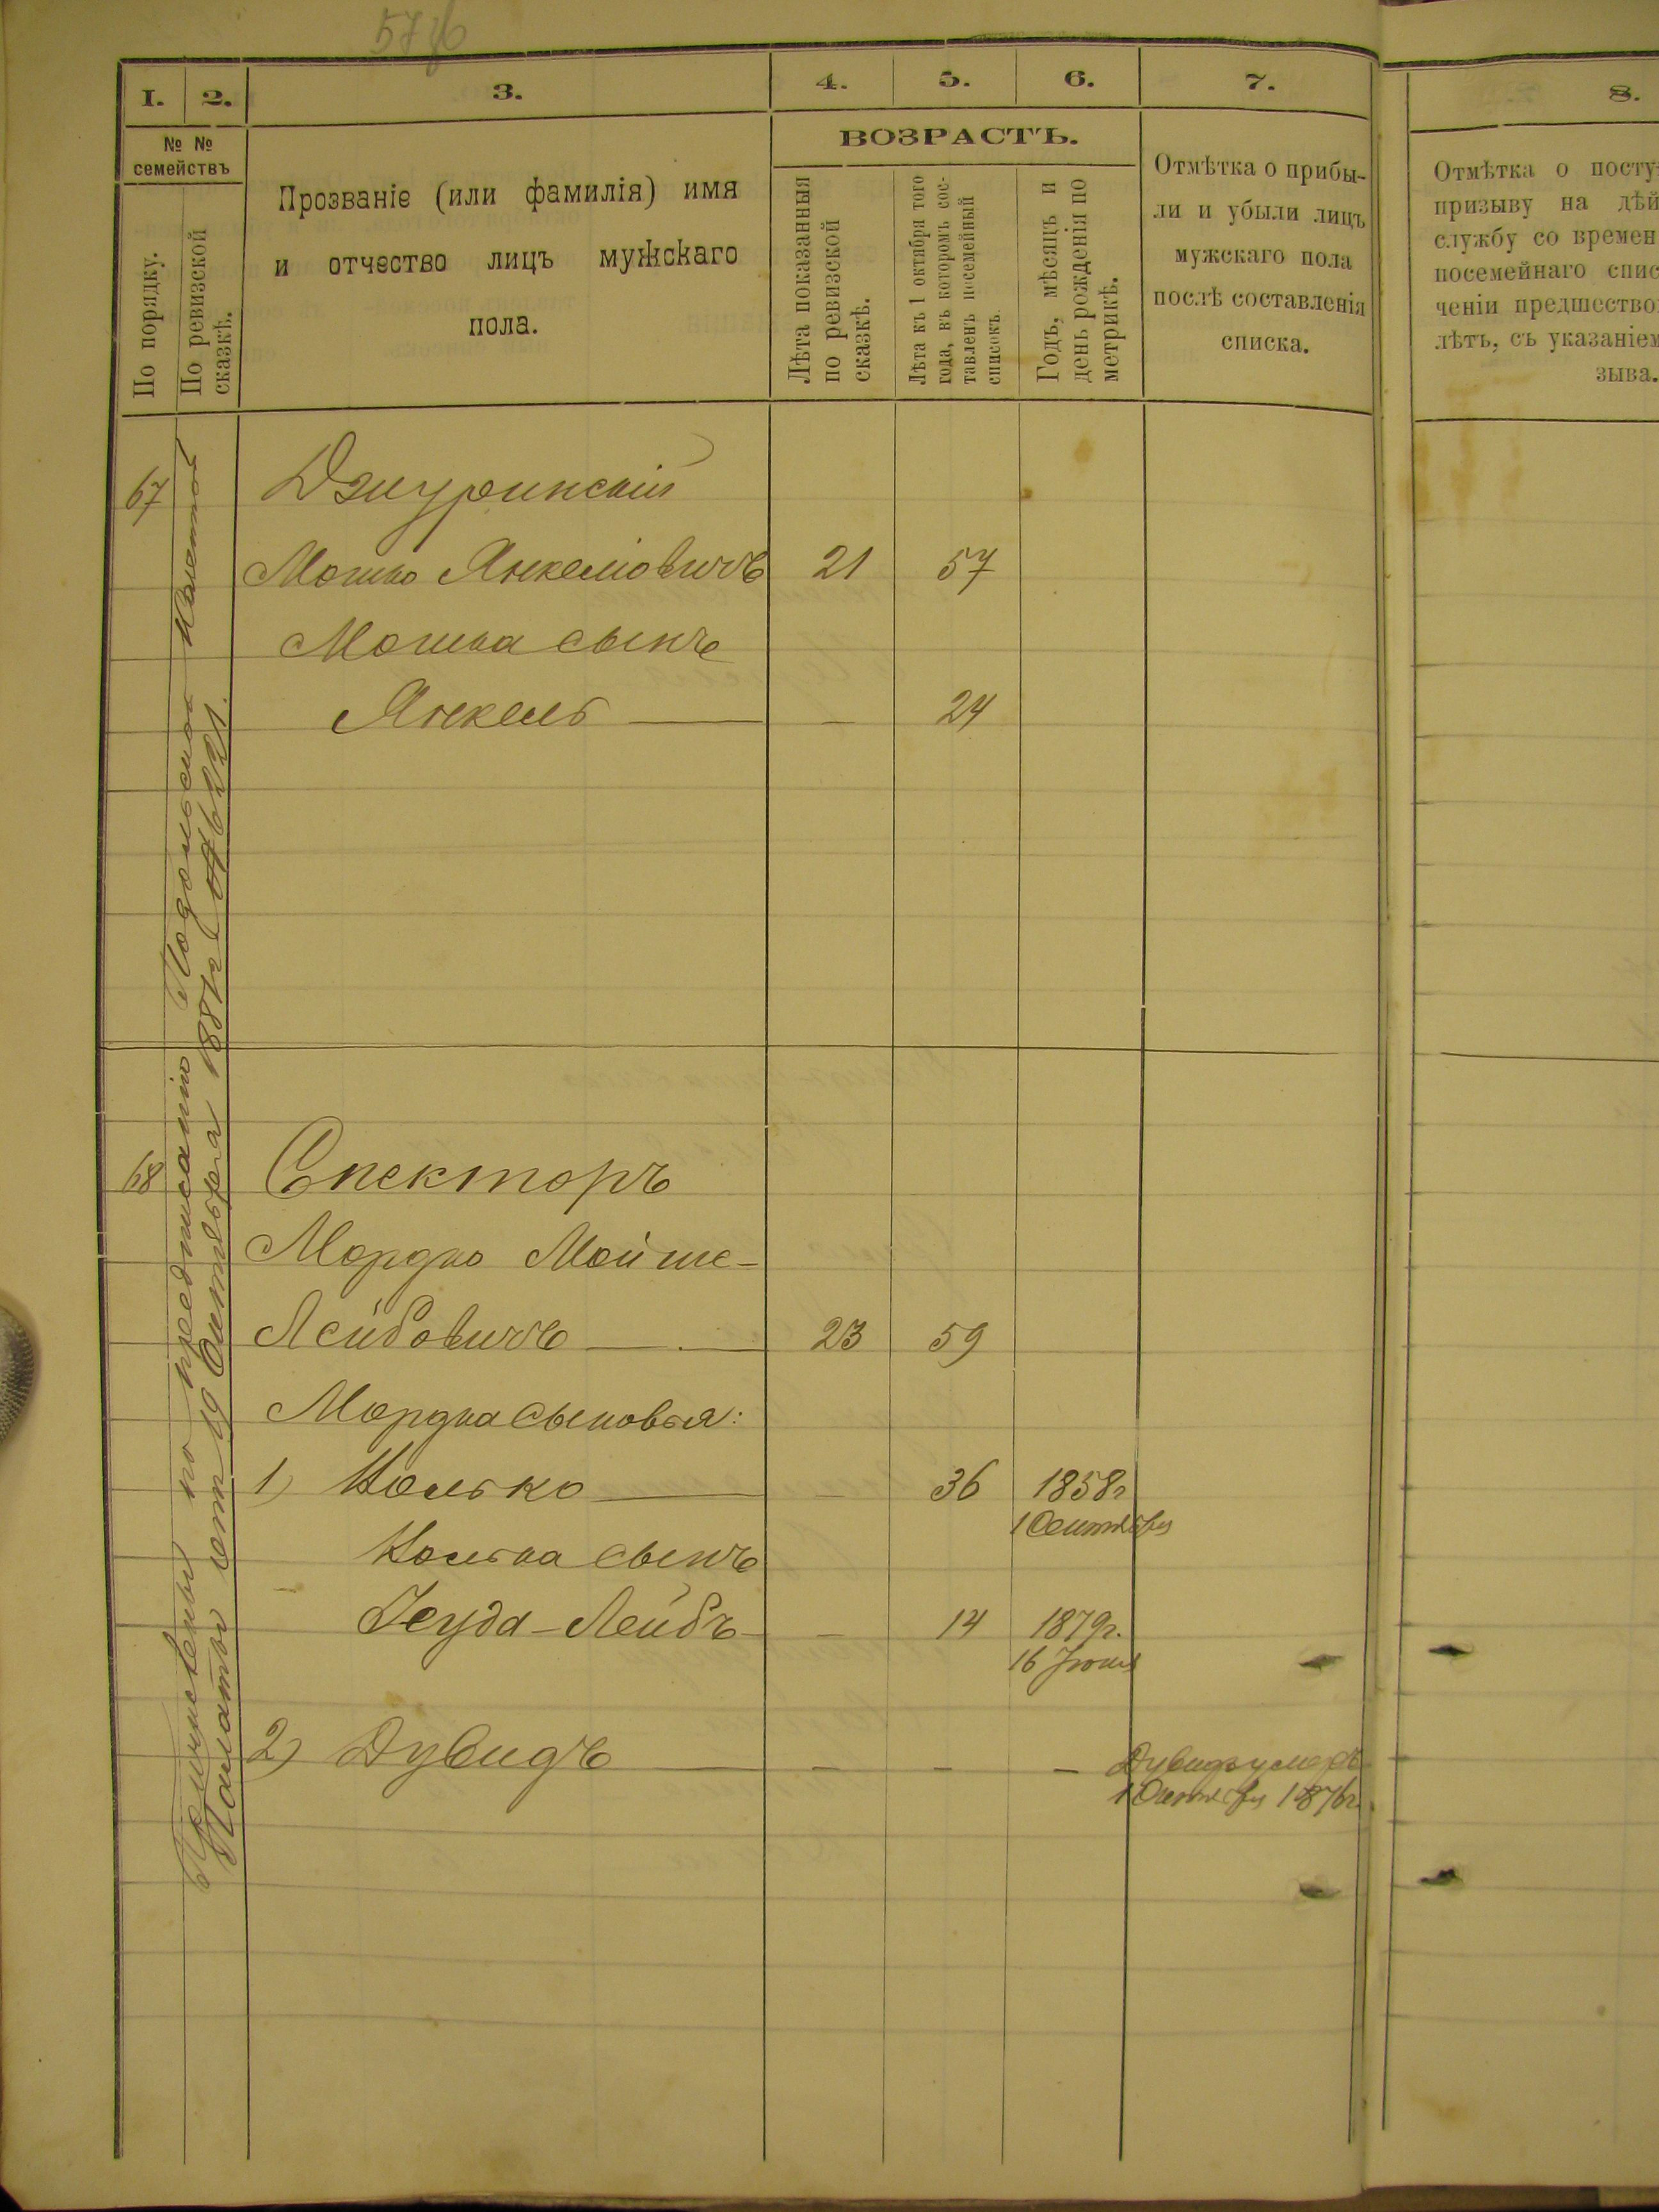 57
1.
2.
3.
4.
5.
6.
7.
№ №
семействъ
По порядку.
По ревизской
сказкѣ.
Прозваніе (или фамилія) имя
и отчество лицъ мужскаго
пола.
ВОЗРАСТЪ.
Лѣта показанныя
по ревизской
сказкѣ.
Лѣта къ 1 октября того
года, въ которомъ сос-
тавленъ посемейный
списокъ.
Годъ, мѣсяцъ и
день рожденія по
метрикѣ.
Отмѣтка о прибы-
ли и убыли лицъ
мужскаго пола
послѣ составленія
списка.
8.
Отмѣтка о посту
призыву на дѣй
службу со времен
посемейнаго спис
ченіи предшество
лѣтъ, съ указаніем
зыва.
Причислены по предписанію Подольской Казенной
Палаты отъ 19 Октября 1887 г №6221.
67
Джуринскій
Мошко Янкеліовичъ 21 57
Мошка сынъ
Янкель — — 24
68
Спекторъ
Мордко Мойше-
Лейбовичъ — 23 59
Мордка сыновья:
1) Іолько — — 36 1858г
1 Сентября
Іолька сынъ
Іеуда-Лейбъ — — 14 1879г.
16 Іюня
2) Дувидъ — — — — Дувидъ умеръ
1 Октября 1876г.